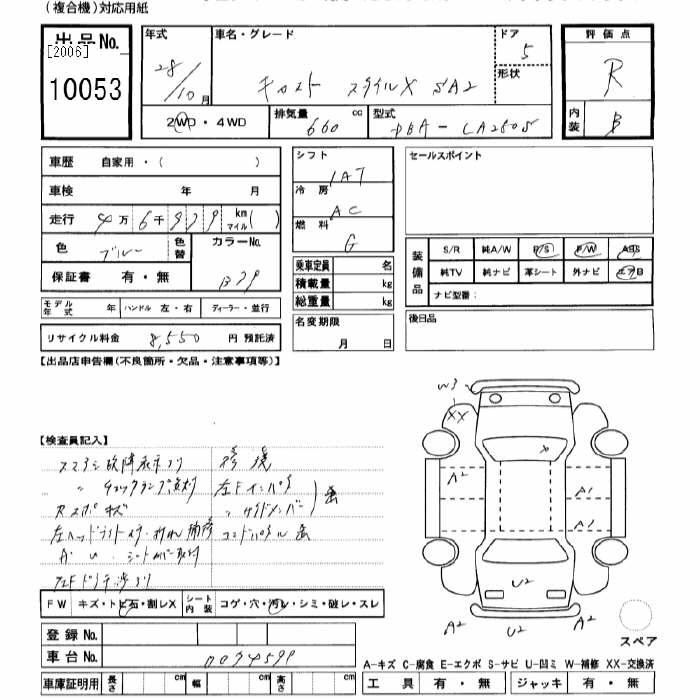 (複合機)対応用紙
出品No.
[2006]
10053
年式
28/10月
車名・グレード
キャスト スタイルX SA2
ドア
5
形状
評価点
R
2WD・4WD
排気量
cc
660
型式
DBA-LA250S
内装
B
車歴 自家用・( )
車検 年 月
走行 4万6千929 km マイル( )
色 ブルー 色替 カラーNo. B79
保証書 有・無
シフト
IAT
冷房
AC
燃料
G
セールスポイント
乗車定員 名
積載量 kg
総重量 kg
装備品
S/R 純A/W P/S P/W ABS
純TV 純ナビ 革シート 外ナビ エアB
ナビ型番:
モデル年式 年 ハンドル 左・右 ディーラー・並行
名変期限
月 日
後日品
リサイクル料金 8,550 円 預託済
【出品店申告欄(不良箇所・欠品・注意事項等)】
W3
XX
A2
A1
A1
U2
A2
U2
A2
【検査員記入】
スマアシ故障表示有り
〃 チェックランプ点灯
左ヘッドライト
シートカバー取付
修復
左Fインパネ
〃 サイドメンバー
コアパネル
FW キズ・トビ石・割レX シート内装 コゲ・穴・汚レ・シミ・破レ・スレ
登録No.
車台No. 0074599
スペア
A-キズ C-腐食 E-エクボ S-サビ U-凹ミ W-補修 XX-交換済
車庫証明用 長さ cm 幅 cm 高さ cm
工具 有・無 ジャッキ 有・無